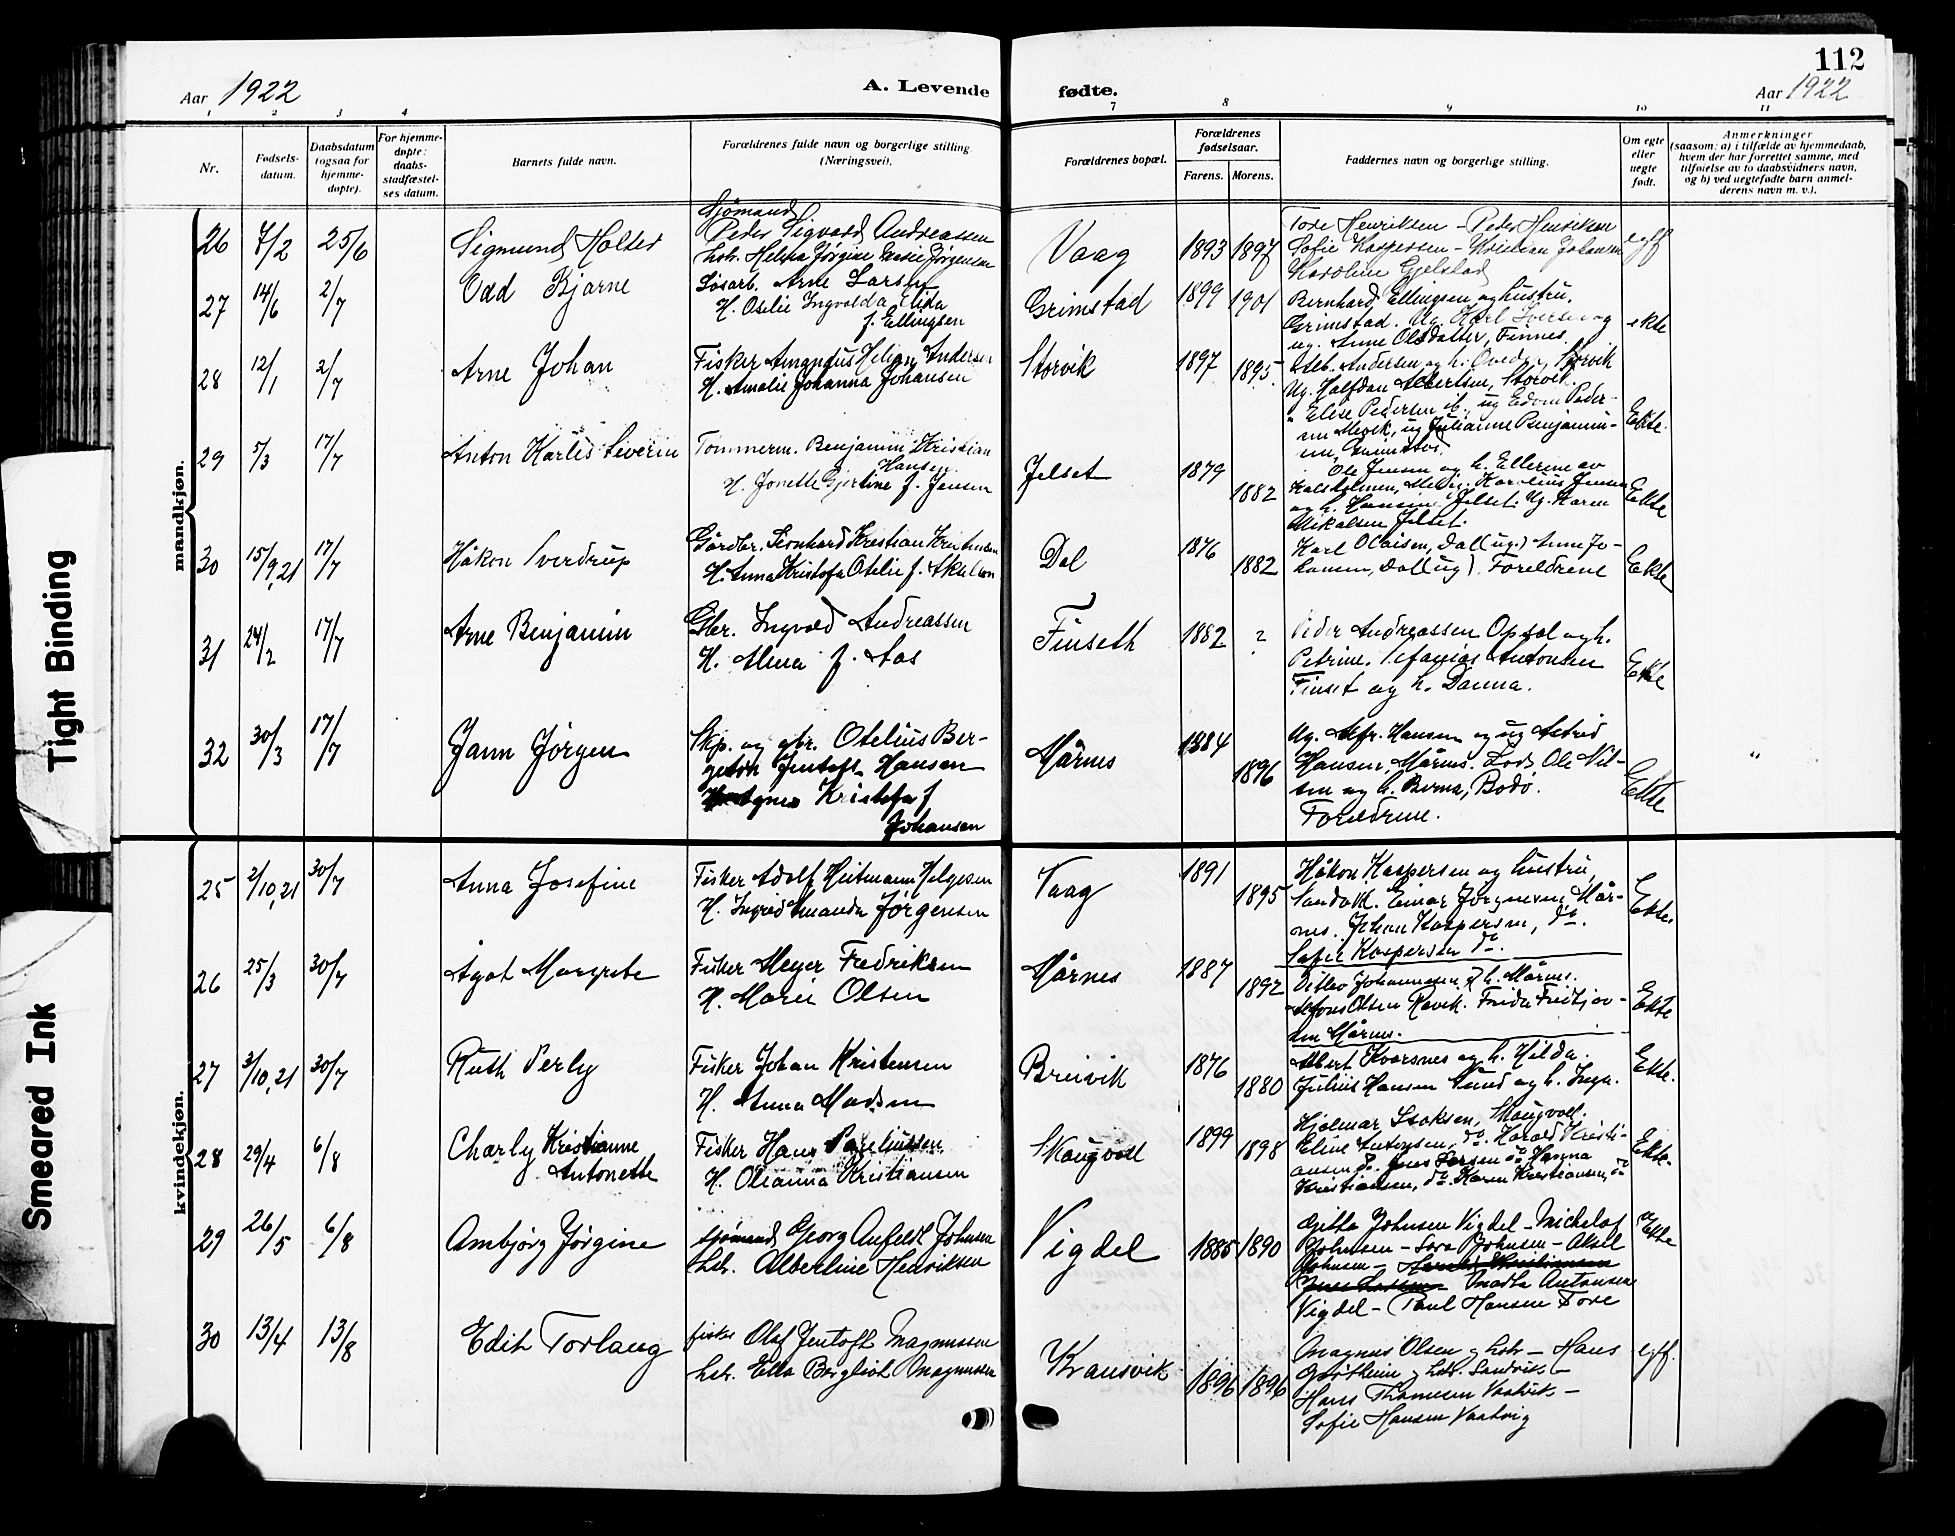 112
Aar 1922
A. Levende
fødte.
Aar 1922
1 2 3 4 7 8 9 10 11
Nr.
Fødsels-
datum.
Daabsdatum
(ogsaa for
hjemme-
døpte).
For hjemme-
døpte:
daabs-
stadfæstel-
ses datum.
Barnets fulde navn.
Forældrenes fulde navn og borgerlige stilling
(Næringsvei).
Forældrenes bopæl.
Forældrenes
fødselsaar.
Farens. Morens.
Faddernes navn og borgerlige stilling.
Om egte
eller
uegte
født.
Anmerkninger
(saasom: a) i tilfælde av hjemmedaab,
hvem der har forrettet samme, med
tilføielse av to daabsvidners navn,
og b) ved uegtefødte barn anmel-
derens navn m. v.).
mandkjøn.
26 7/2 25/6 Sigmund Holter
Sjømand
Peder Sigvard Andreassen
hstr. Helena Jørgine Marie Jørgensen
Vaag 1893 1897
Tore Henriksen - Peder Henriksen
Sofie Kaspersen - Kristian Johansen
Karoline Gjelstad
egtf
27 14/6 2/7 Odd Bjarne
Løsarb. Arne Larsen
H. Otelie Ingvalda Elida
f. Ellingsen
Grimstad 1899 1901
Bernhard Ellingsen og hustru,
Grimstad. Ug. Karl Iversen og
ug. Anne Olsdatter, Finnes.
ekte
28 12/1 2/7 Arne Johan
Fisker Amandus Helian Andersen
H. Amalie Johanna Johansen
Storvik 1897 1895
Andersen og h. Storvik
Ug. Halfdan Albertsen, Storvik.
" Elise Pedersen ib., ug Edvin Peder-
sen Mevik, ug Julianne Benjamin-
sen, Grimstad.
Ekte.
29 5/3 17/7 Anton Karlis Severin
Tømmerm. Benjamin Kristian
Hansen
H. Jonette Gjertine f. Jensen
Jelset 1879 1882
Ole Jensen og h. Ellerine av
Karelius Jensen
og h. Hansine Jelset. Ug. Karen
Mikalsen Jelset.
Ekte
30 15/9,21 17/7 Håkon Sverdrup
Gårdbr. Leonhard Kristian Kristensen
H. Anna Kristofa Otelie f.
Dal 1876 1882
Karl Olaisen, Dal (ug.) Anne Jo-
hansen, Dal (ug). Foreldrene
Ekte
31 24/2 17/7 Arne Benjamin
Gbr. Ingvald Andreassen
H. Alma f. Aas
Finseth 1882 ?
Peder Andreassen Opsal og h.
Petrine. Sefanias Antonsen
Finset og h. Danna.
Ekte
32 30/3 17/7 Jann Jørgen
Skp. og gbr. Otelius Ber-
geton Jentoft Hansen
H. Agnes Kristofa f
Johansen
Mårnes 1884 1896
Ug. Alfr. Hansen og ug Astrid
Hansen Mårnes. Lods Ole Nil-
sen og h. Berna, Bodø.
Foreldrene.
Ekte
"
kvindekjøn.
25 2/10,21 30/7 Anna Josefine
Fisker Adolf Heitmann Helgesen
H. Ingrid Amanda Jørgensen
Vaag 1891 1895
Håkon Kaspersen og hustru,
Sandvik. Einar Jørgensen Mår-
nes. Johan Kaspersen, do.
Sofie Kaspersen do.
Ekte.
26 25/3 30/7 Ågot Margrete
Fisker Meyer Fredriksen
H. Marie Olsen
Mårnes 1887 1892
Ditlev Johannesen og h. Mårnes.
Alfons Olsen Kavik. Frida Fridtjov-
sen Mårnes.
Ekte
27 3/10,21 30/7 Ruth Perly
Fisker Johan Kristensen
H. Anna Madsen
Breivik 1876 1880
Albert Kvarsnes og h. Hilda.
Julius Hansen Sund og h. Inga.
Ekte.
28 29/4 6/8 Charly Kristianne
Antonette
Fisker Hans Pareliussen
H. Oleanna Kristiansen
Skaugvoll 1899 1898
Hjalmar Isaksen, Skaugvoll.
Eline Antonsen, do. Harald Kristi-
ansen do. Jens Larsen do Hanna
Kristiansen, do. Karen Kristiansen, do
Ekte.
29 26/5 6/8 Arnbjørg Jørgine
sjømand Georg Anfeldt Johnsen
hstr. Albertine Henriksen
Vigdel 1885 1890
Gitta Johnsen Vigdel - Michelof
Johnsen - Sara Johnsen - Aksel
Johnsen -
Vigdel - Paul Hansen Tore
Ekte
30 13/4 13/8 Edith Torlaug
fisker Olaf Jentoft Magnussen
hstr. Ella Bergliot Magnussen
Kransvik 1896 1896
Magnus Olsen og hstr - Hans
og hstr. Sandvik -
Hans Thomesen Vaatvik -
Sofie Hansen Vaatvig
egtf.
Tight Binding
Smeared Ink